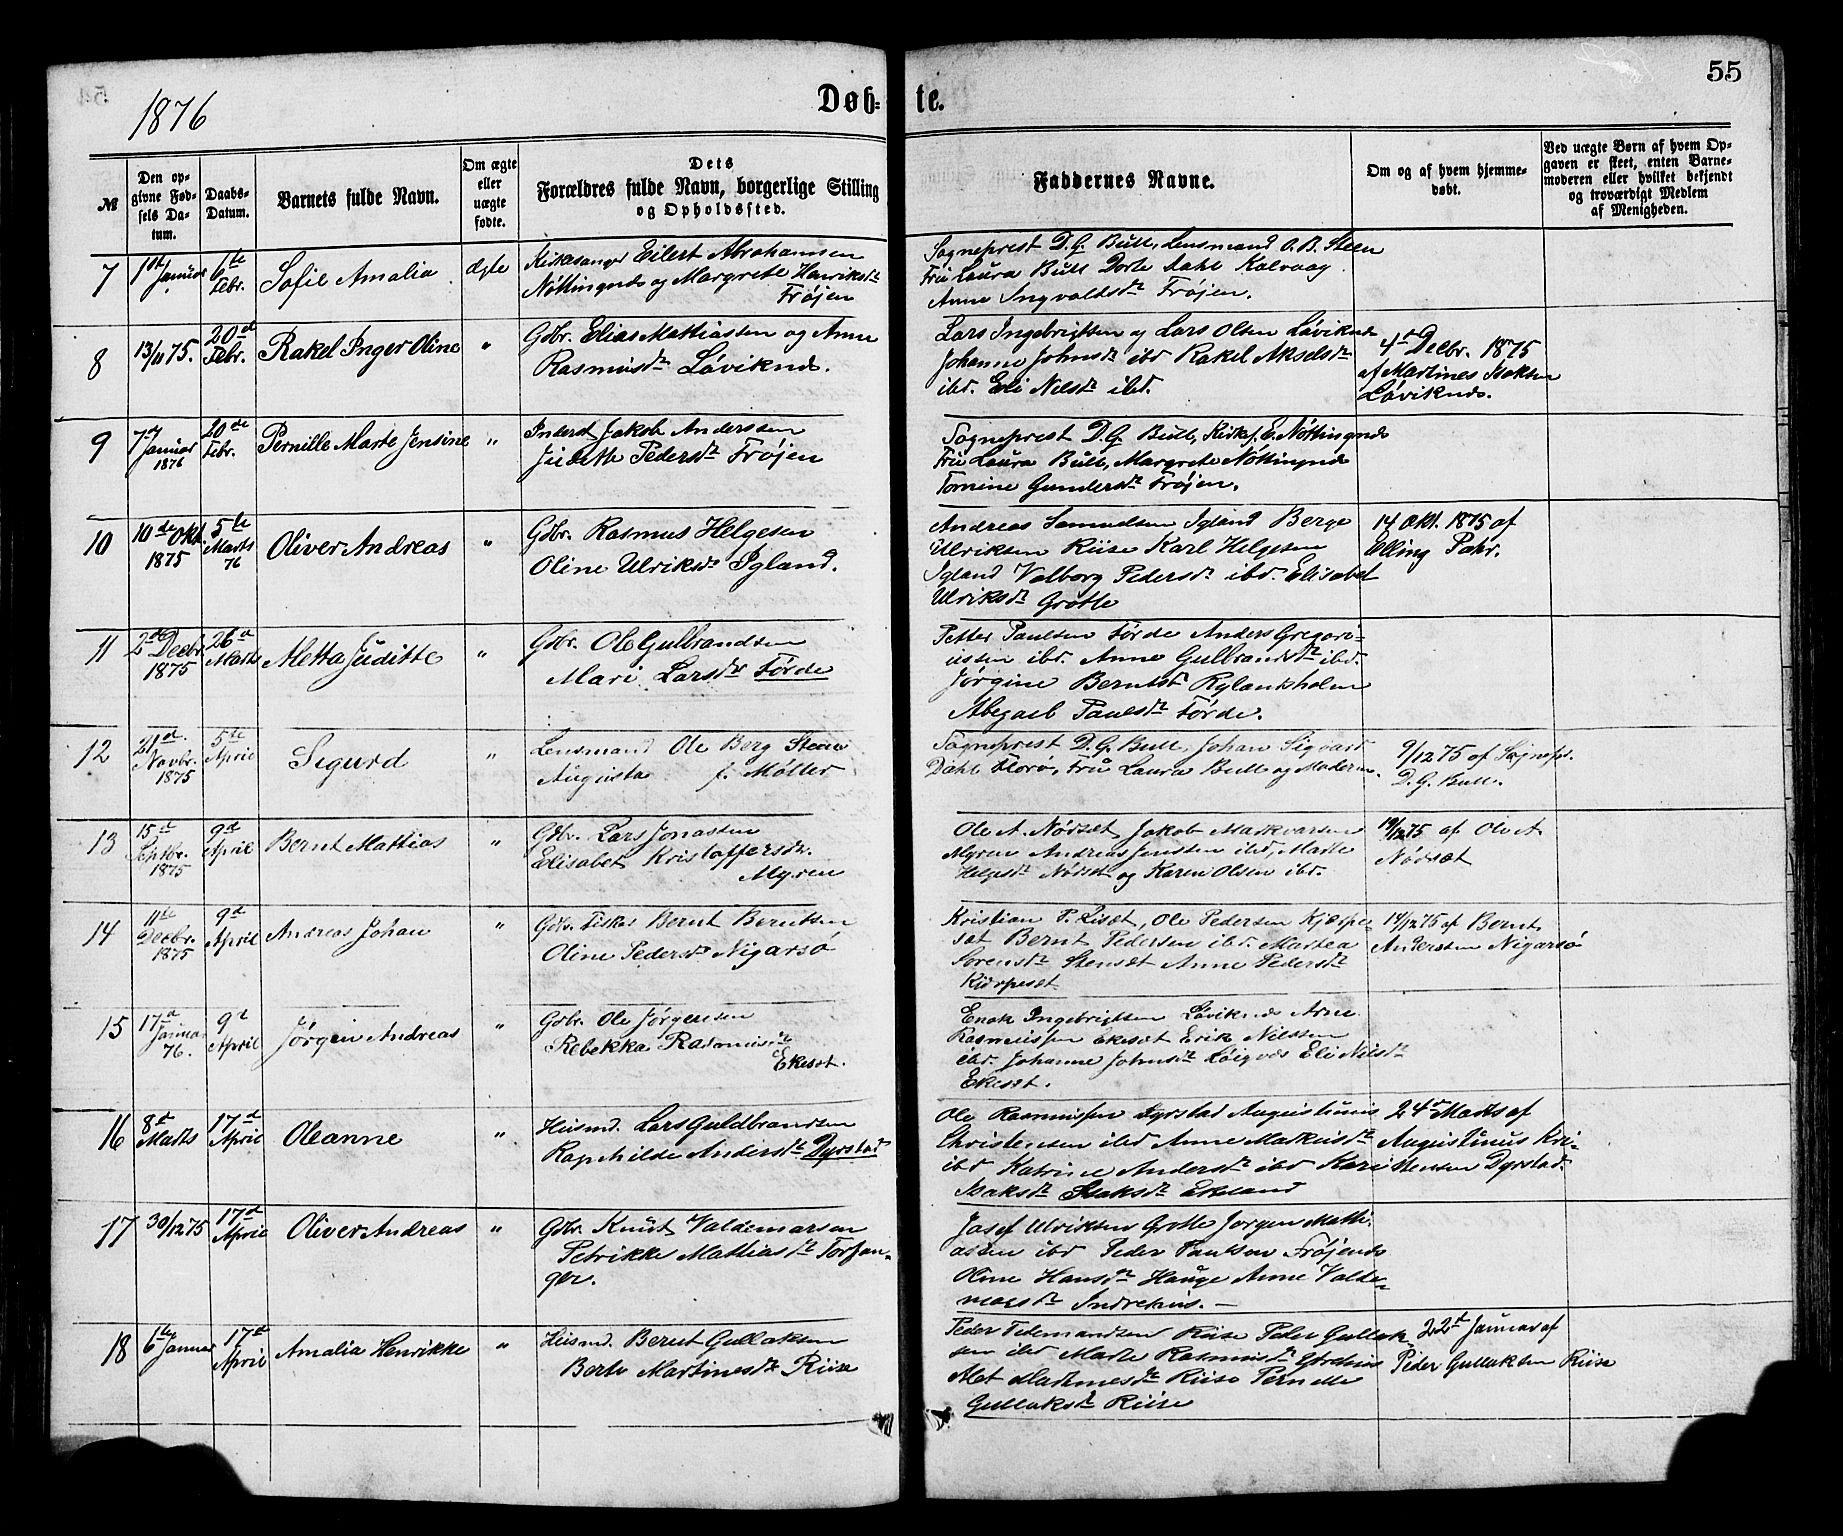 55
1876
Døb-te.
№
Den opgivne Fødsels Datum.
Daabs-Datum.
Barnets fulde Navn.
Om ægte eller uægte fødte.
Dets Forældres fulde Navn, borgerlige Stilling og Opholdssted.
Faddernes Navne.
Om og af hvem hjemmedøbt.
Ved uægte Børn af hvem Opgaven er skeet, enten Barnemoderen eller hvilket bekjendt og troværdigt Medlem af Menigheden.
7 1ste Januar 6te Febr. Sofie Amalia ægte
Kirkesanger Eilert Abrahamsen
Nøttingnes og Margrete Henriksdr
Frøjen
Sogneprest D. G. Bull, Lensmand O. B. Steen
Fru Laura Bull Dorte Dahl Kalvaag
Anne Ingvaldsdr Frøjen.
8 13/11 75. 20de Febr. Rakel Inger Oline "
Gdbr. Elias Mattiassen og Anne
Rasmusdr Løviknæs.
Lars Ingebrigtsen og Lars Olsen Løviknæs
Johanne Johnsdr ibd Rakel Akselsdr
ibd. Eli Nilsdr ibd.
4de Decbr. 1875
af Martines Isaksen
Løviknæs.
9 7de Januar 1876 20de Febr. Pernille Marte Jensine "
Inderst Jakob Anderssen
Judithe Pedersdr Frøjen
Sogneprest D. G. Bull, Kirkes. E. Nøttingnæs
Fru Laura Bull, Margrete Nøttingnæs
Tomine Gundersdr Frøjen.
10 10de Okt. 1875 5te Marts 76 Oliver Andreas "
Gdbr. Rasmus Helgesen
Oline Ulriksdr Igland.
Andreas Samuelsen Igland Berge
Ulriksen Riise Karl Helgesen
Igland Valborg Pedersdr ibd. Elisabet
Ulriksdr Grotle
14 Okt. 1875 af
Elling Pahr.
11 2de Decbr. 1875 26de Marts Metta Juditte "
Gdbr. Ole Gulbrandsen
Mari Larsdr Førde
Petter Paulsen Førde Anders Gregori-
ussen ibd. Anne Gulbrandsdr ibd.
Jørgine Berntsdr Rylandsholm
Abegael Paulsdr Førde.
12 21de Novbr. 1875 5te April Sigurd "
Lensmand Ole Berg Steen
Augusta f. Møller
Sogneprest D. G. Bull, Johan Sigvard
Dahl Florø, Fru Laura Bull og Moderen.
9/12 75 af Sognepr.
D. G. Bull.
13 15de Septbr. 1875 9de April Bernt Mattias "
Gdbr. Lars Jonassen
Elisabet Kristoffersdr.
Myren
Ole A. Nødset, Jakob Markvarsen
Myren Andreas Jenssen ibd, Marte
Helgesdr Nødset og Karen Olsen ibd.
19/12 75 af Ole A.
Nødset
14 11te Decbr. 1875 9de April Andreas Johan "
Gdbr. Fisker Bernt Berntsen
Oline Pedersdr Nigarsø
Kristian P. Liset, Ole Pedersen Kjørpe-
set Bernt Pedersen ibd. Martea
Sørensdr Stenset Anne Pedersdr
Kjørpeset
14/12 75 af Bernt
Anderssen Nigarsø
15 17de Januar 76. 9de April Jørgen Andreas "
Gdbr. Ole Jørgensen
Rebekka Rasmusdr
Ekeset.
Enok Ingebrigtsen Løviknæs Arne
Rasmussen Ekeset Erik Nilssen
ibd. Johanne Johnsdr Eli Nilsdr
Ekeset.
16 8de Marts 17de April Oleanne "
Husmd. Lars Guldbrandsen
Ragnhilde Andersdr Dyrstad
Ole Rasmussen Dyrstad Augustinus
Christensen ibd Anne Markusdr
ibd Katrine Andersdr ibd Kari
Isaksdr Isaksdr Ekeland
24de Marts af
Augustinus Kri-
stensen Dyrstad.
17 30/12 75 17de April Oliver Andreas "
Gdbr. Knut Valdemarsen
Petrikke Mattiasdr Torfan-
ger.
Josef Ulriksen Grotle Jørgen Matti-
assen ibd Peder Paulsen Frøjen
Oline Hansdr Hauge Anne Valde-
marsdr Indrehus. —
18 6te Januar 17de April Amalia Henrikke "
Husmd. Bernt Gullaksen
Berte Martinesdr Riise
Peder Tidemandsen Riise Peder Gullak-
sen ibd Marte Rasmusdr
Alet Martinesdr Riise Pernille
Gullaksdr Riise
22de Januar af
Peder Gullaksen Riise